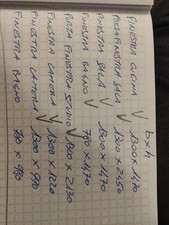 b x h
FINESTRA CUCINA ✓ 1300 x 1470
PORTAFINESTRA SALA 1300 x 2450
FINESTRA SALA ✓ 1300 x 1470
FINESTRA BAGNO ✓ 780 x 1470
PORTA FINESTRA STUDIO ✓ 1300 x 2130
FINESTRA CAMERA ✓ 1300 x 1220
FINESTRA CAMERA ✓ 1300 x 990
FINESTRA BAGNO 780 x 980